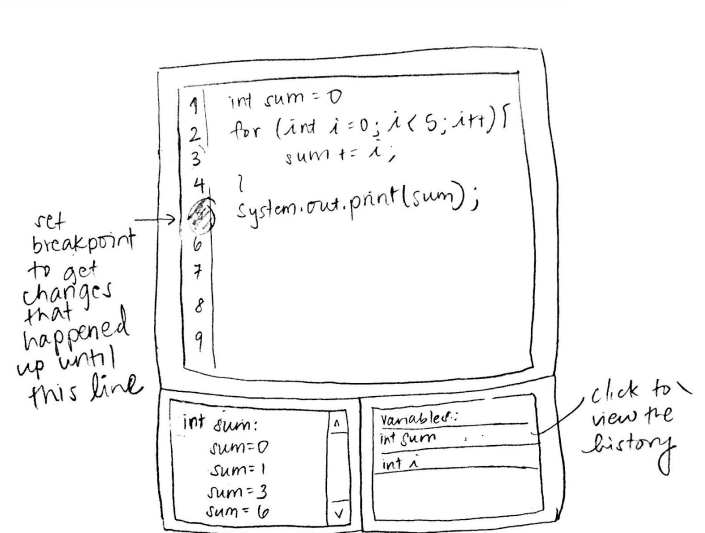 1 int sum = 0
2 for (int i = 0; i < 5; i++) {
3 sum += i;
4 }
system.out.print(sum);
6
7
8
9
set
breakpoint
to get
changes
that
happened
up until
this line
int sum:
sum=0
sum=1
sum=3
sum=6
Variables:
int sum
int i
click to
view the
history